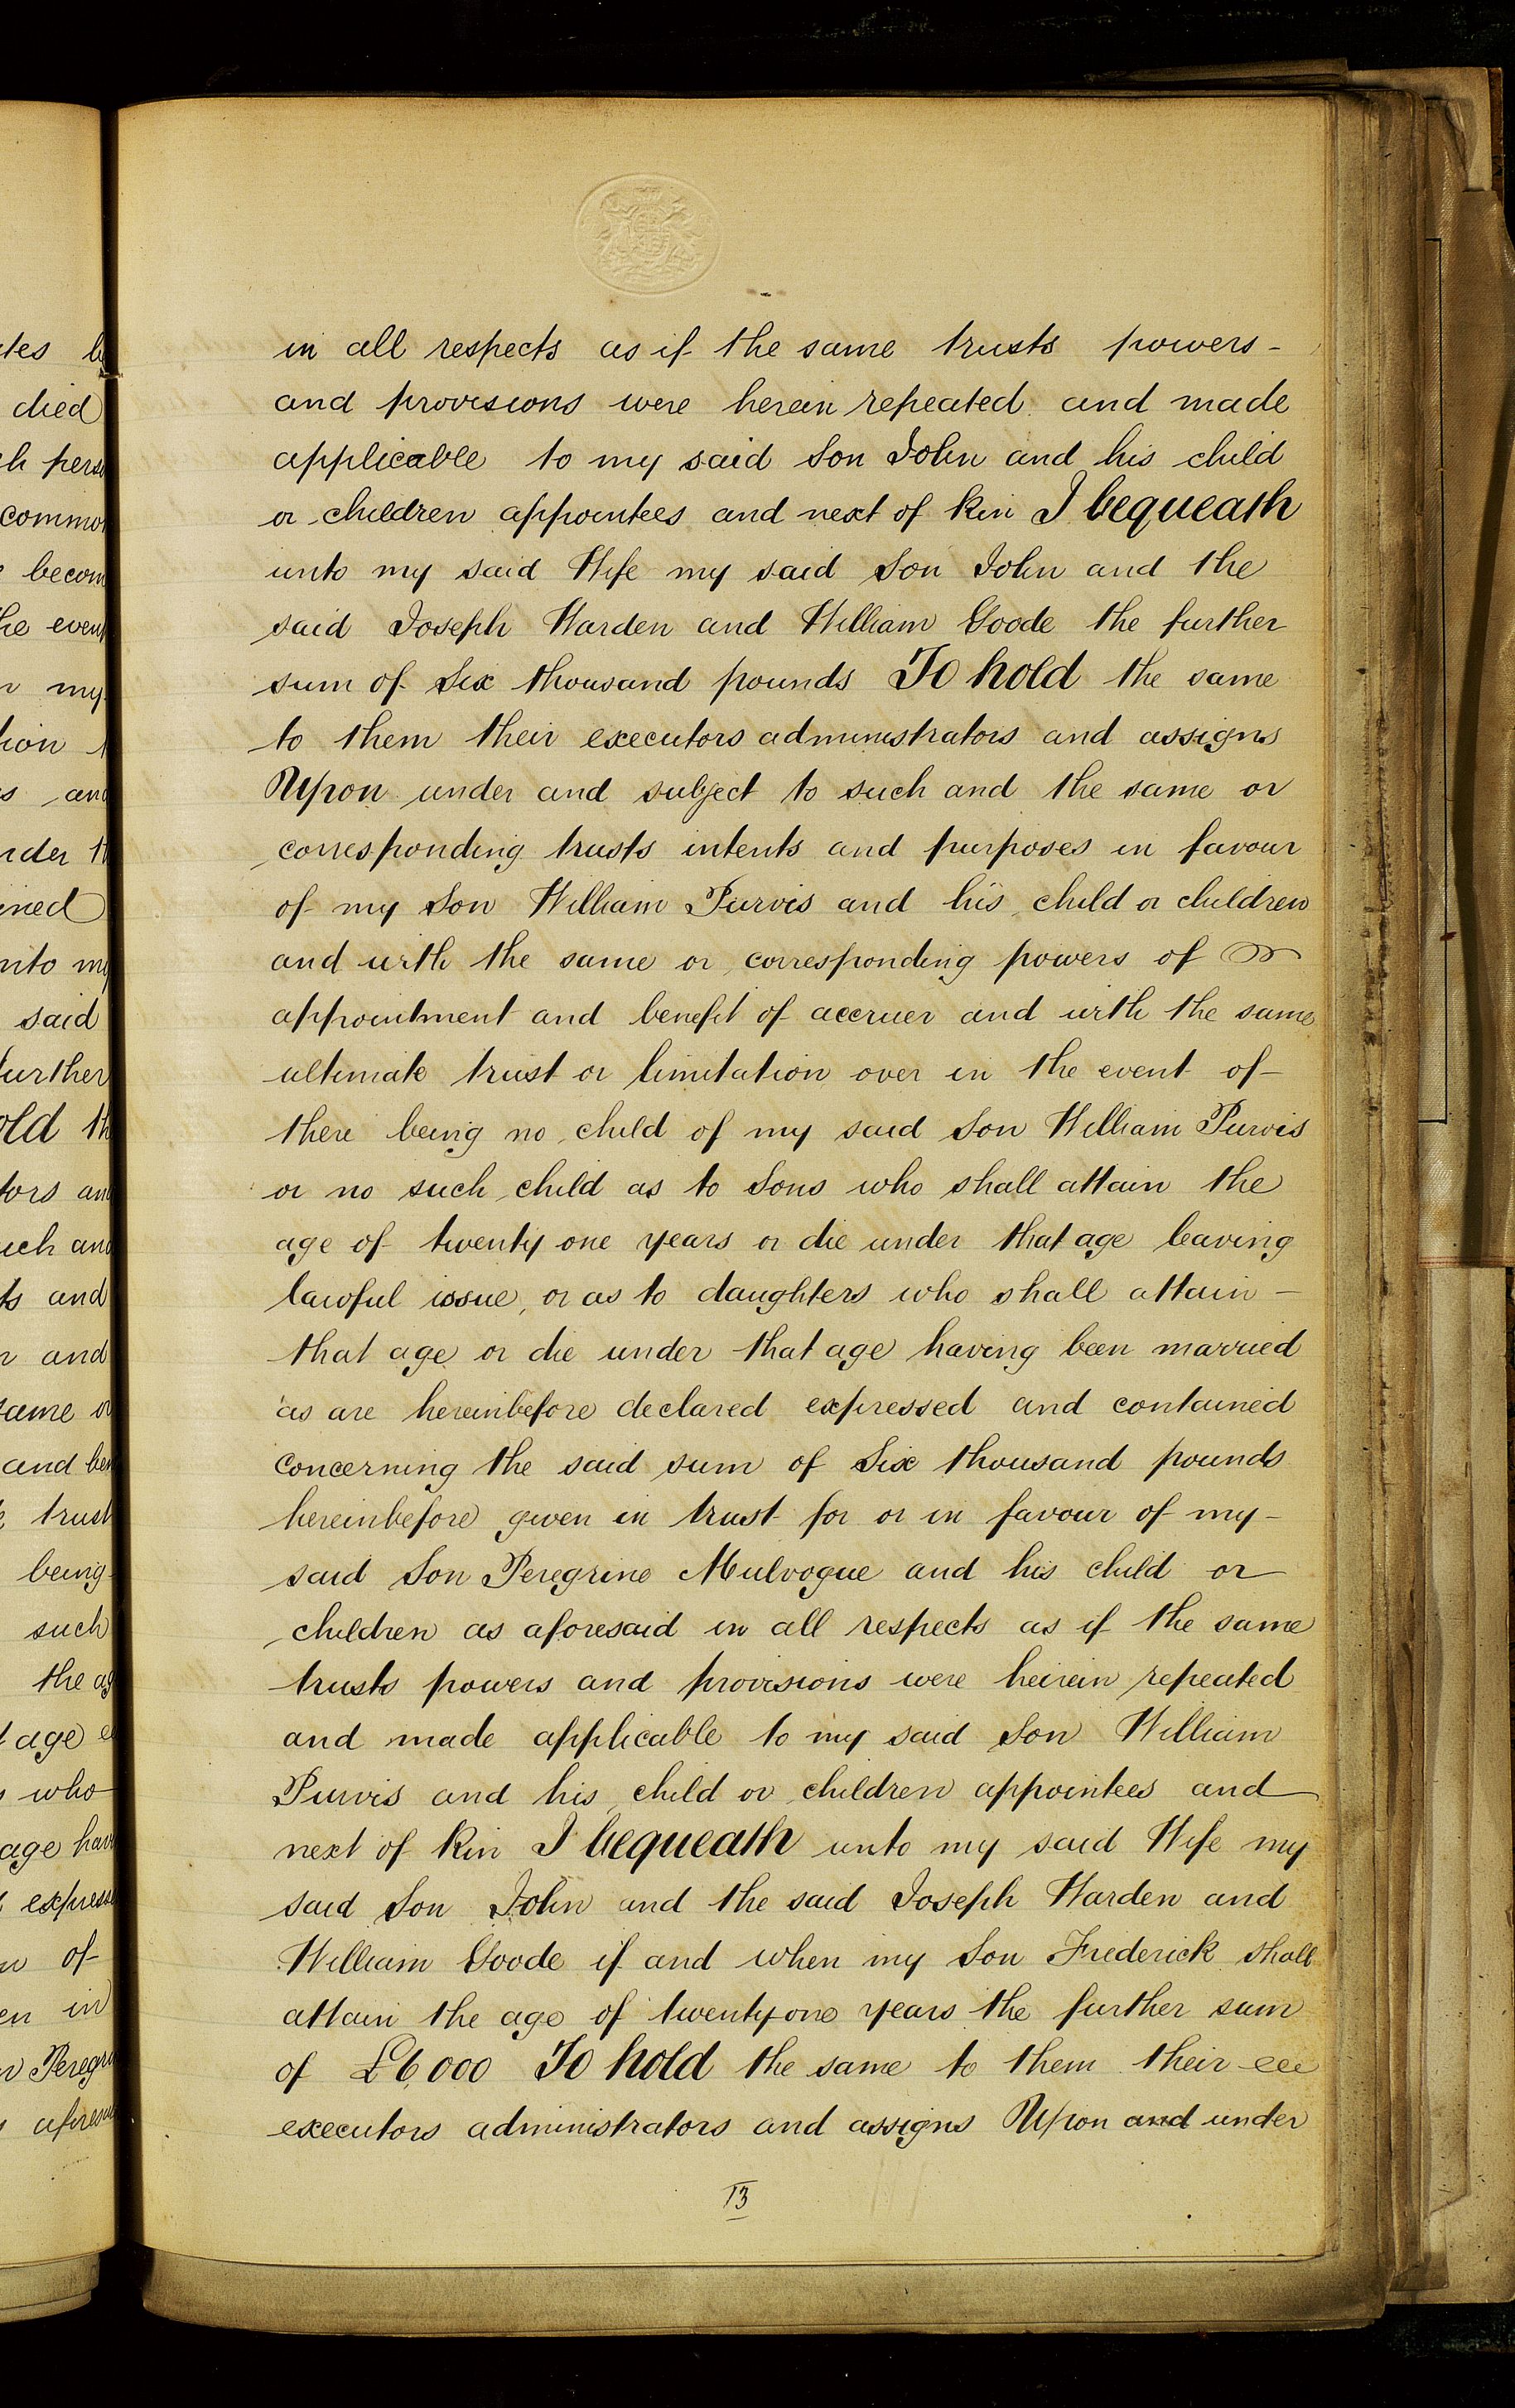 in all respects as if the same trusts powers -
and provisions were herein repeated and made
applicable to my said Son John and his child
or children appointees and next of kin I bequeath
unto my said Wife my said Son John and the
said Joseph Warden and William Goode the further
sum of Six thousand pounds To hold the same
to them their executors administrators and assigns
Upon under and subject to such and the same or
corresponding trusts intents and purposes in favour
of my Son William Purvis and his child or children
and with the same or corresponding powers of
appointment and benefit of accruer and with the same
ultimate trust or limitation over in the event of -
there being no child of my said Son William Purvis
or no such child as to Sons who shall attain the
age of twenty one years or die under that age leaving
lawful issue, or as to daughters who shall attain -
that age or die under that age having been married
as are hereinbefore declared expressed and contained
concerning the said sum of Six thousand pounds
hereinbefore given in trust for or in favour of my -
said Son Peregrine Mulvogue and his child or
children as aforesaid in all respects as if the same
trusts powers and provisions were heirein repeated
and made applicable to my said Son William
Purvis and his child or children appointees and
next of kin I bequeath unto my said Wife my
said Son John and the said Joseph Warden and
William Goode if and when my Son Frederick shall
attain the age of twenty one years the further sum
of £6,000 To hold the same to them their
executors administrators and assigns Upon and under
13
died
said
further
such
being
who